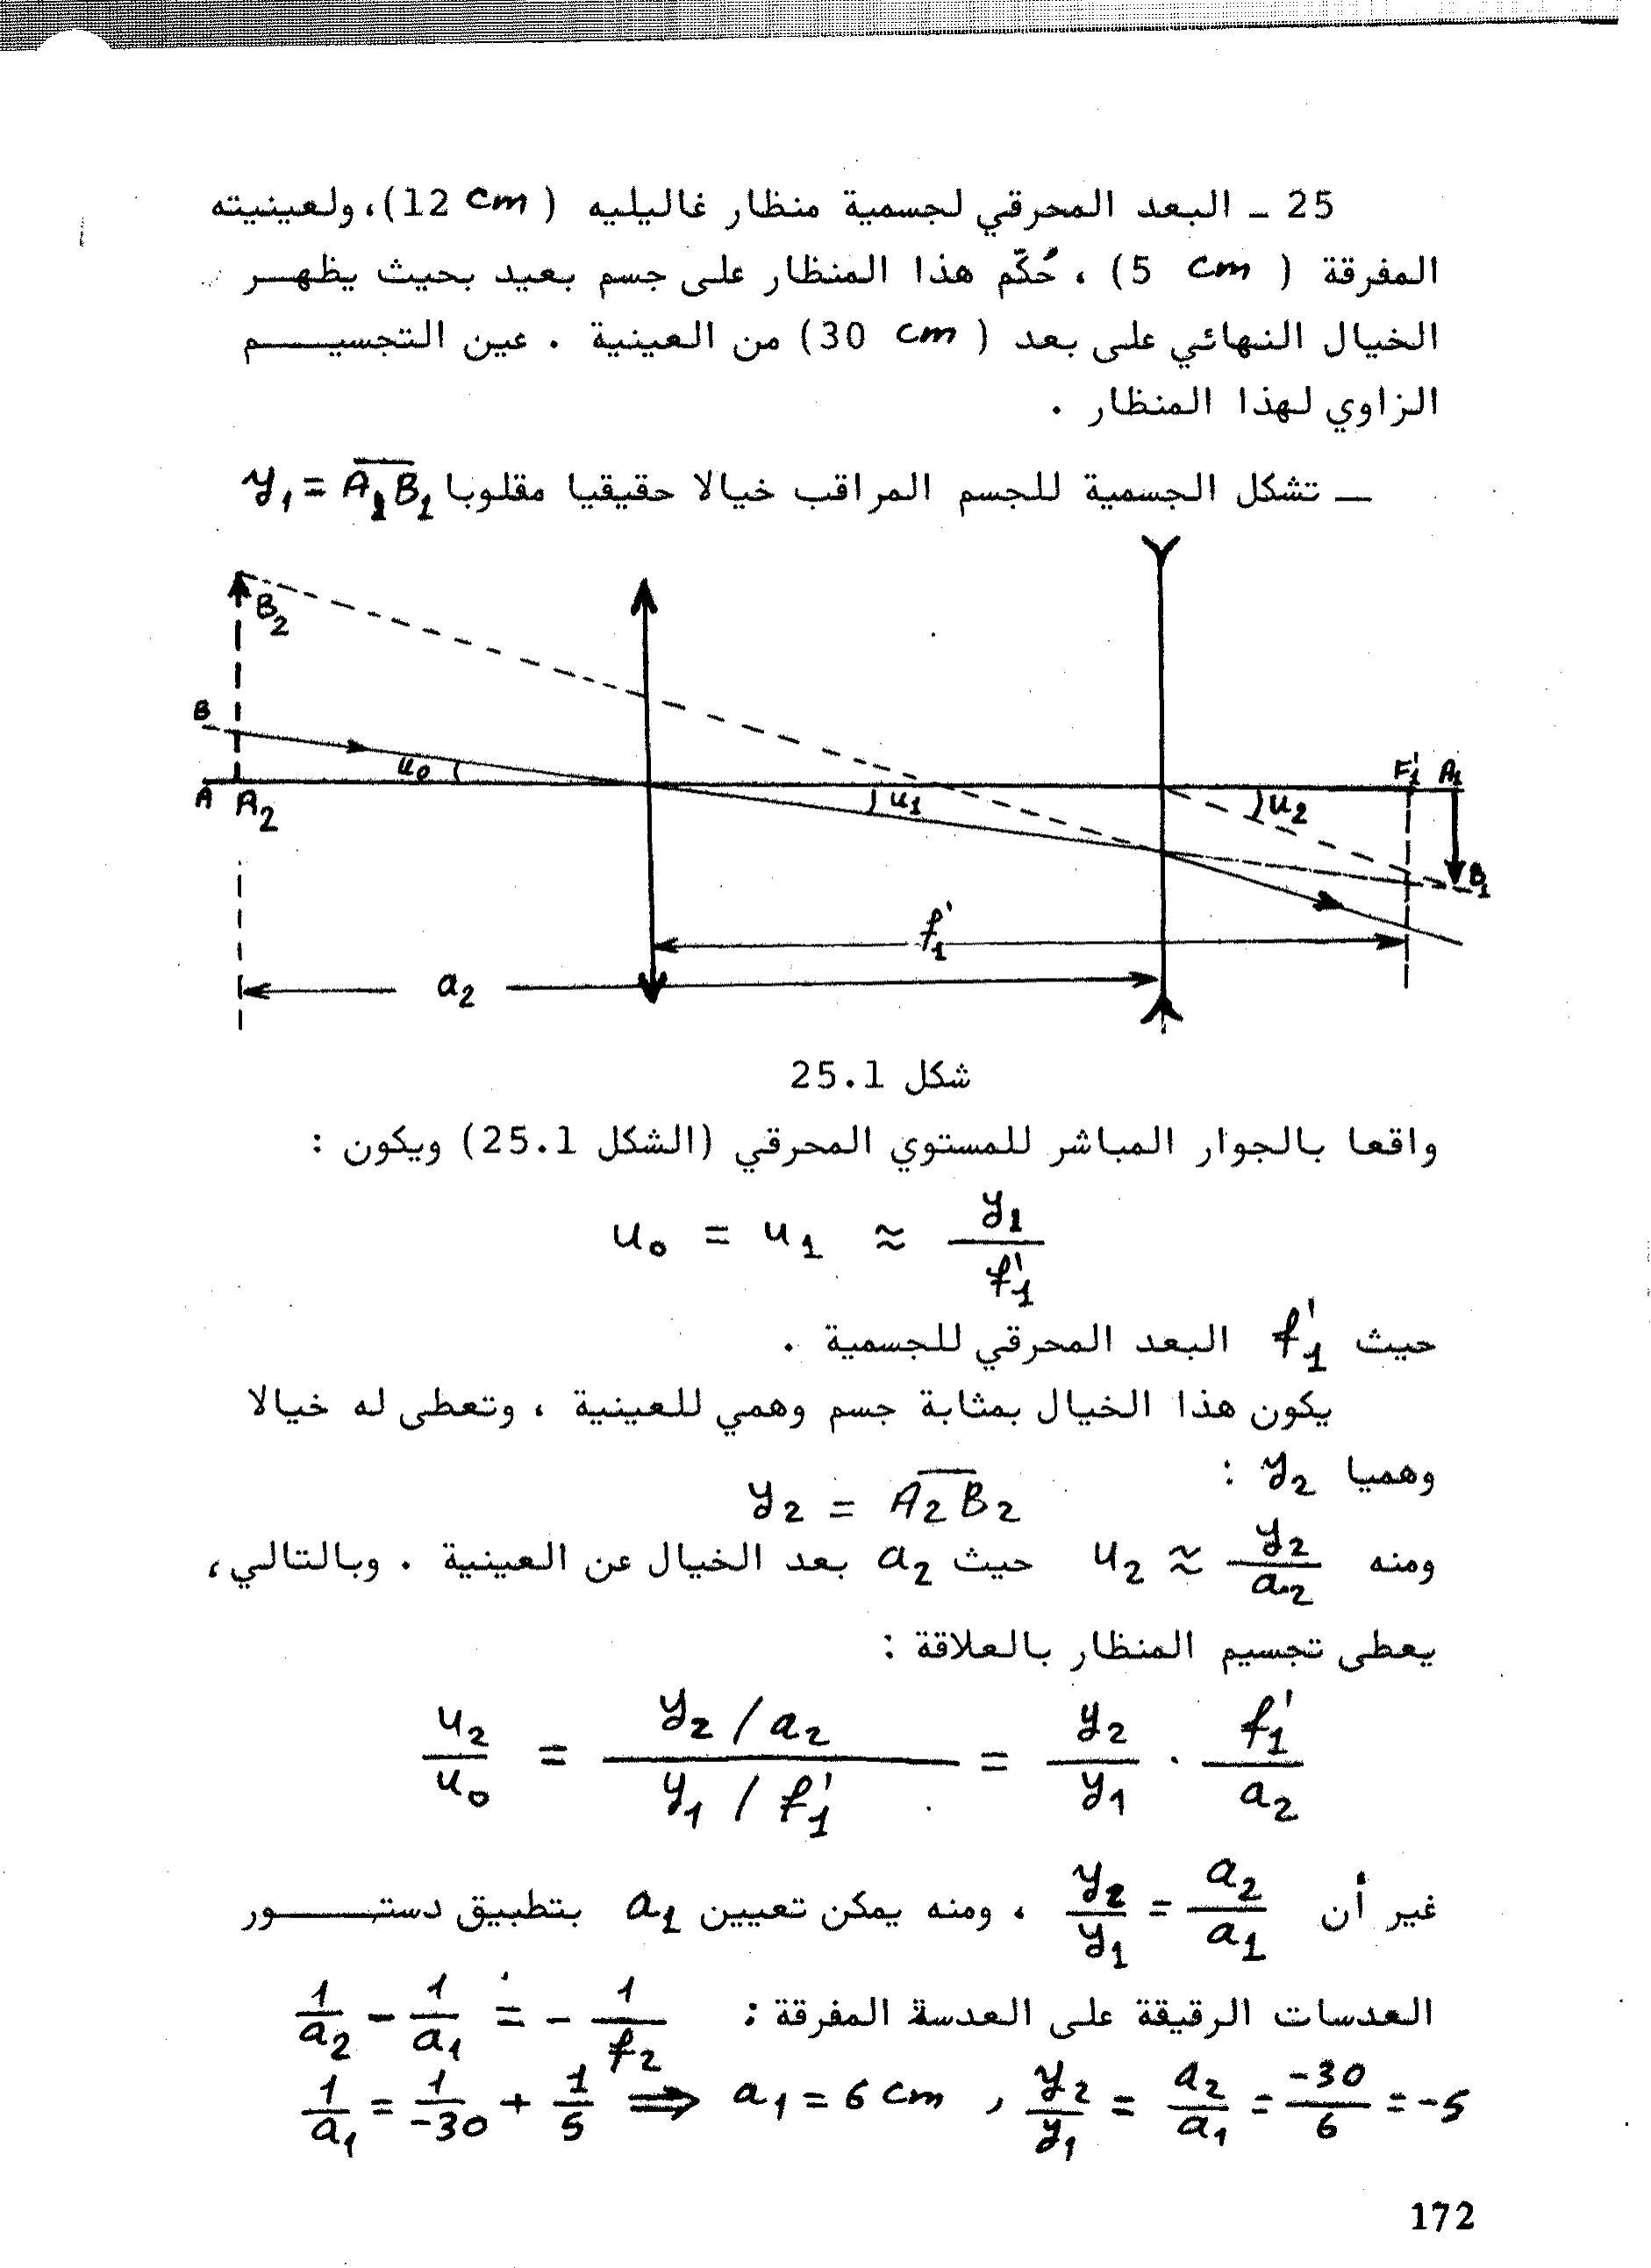 25 ـ البعد المحرقي لجسمية منظار غاليليه ( 12 cm )، ولعينيته
المفرقة ( 5 cm ) ، حُكّم هذا المنظار على جسم بعيد بحيث يظهــر
الخيال النهائي على بعد ( 30 cm ) من العينية . عين التجسيــــم
الزاوي لهذا المنظار .
ــ تشكل الجسمية للجسم المراقب خيالا حقيقيا مقلوبا y₁ = A̅₁B̅₁
B₂
B
u₀
A A₂
u₁
u₂
F'₁ A₁
B₁
f'₁
a₂
شكل 25.1
واقعا بالجوار المباشر للمستوي المحرقي (الشكل 25.1) ويكون :
u₀ = u₁ ≈ y₁ / f'₁
حيث f'₁ البعد المحرقي للجسمية .
يكون هذا الخيال بمثابة جسم وهمي للعينية ، وتعطى له خيالا
وهميا y₂ :
y₂ = A̅₂B̅₂
ومنه u₂ ≈ y₂ / a₂ حيث a₂ بعد الخيال عن العينية . وبالتالي،
يعطى تجسيم المنظار بالعلاقة :
u₂ / u₀ = (y₂ / a₂) / (y₁ / f'₁) = y₂ / y₁ · f'₁ / a₂
غير أن y₂ / y₁ = a₂ / a₁ ، ومنه يمكن تعيين a₁ بتطبيق دستـــــور
العدسات الرقيقة على العدسة المفرقة : 1 / a₂ − 1 / a₁ = − 1 / f₂
1 / a₁ = 1 / −30 + 1 / 5 ⟹ a₁ = 6 cm , y₂ / y₁ = a₂ / a₁ = −30 / 6 = −5
172